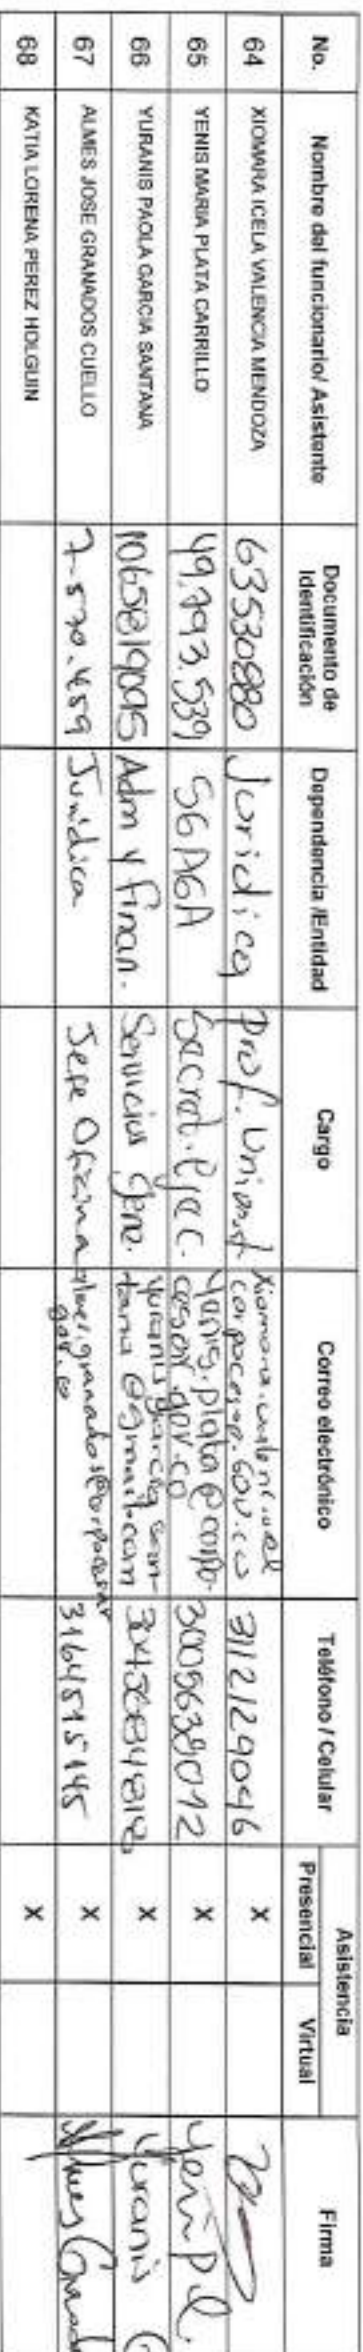 No. Nombre del funcionario/ Asistente Documento de Identificación Dependencia /Entidad Cargo Correo electrónico Teléfono / Celular Asistencia Presencial Virtual Firma
64 XIOMARA ICELA VALENCIA MENDOZA 63530880 Juridica Prof. Univers. X
corpocesar.gov.co 3112129046
65 YENIS MARIA PLATA CARRILLO 49.793.539 SGAGA Secret. Ejec. yenis.plata@corpo-
cesar.gov.co 3005638012 X Yenis Pl.
66 YURANIS PAOLA GARCIA SANTANA 1065819095 Adm y Finan. Servicios Gene. yuranisgarciasan-
tana@gmail.com 3045684818 X Yuranis G
67 ALMES JOSE GRANADOS CUELLO 7.570.459 Juridica Jefe Oficina almes.granados@corpocesar
gov.co 3164515145 X Almes Granad
68 KATIA LORENA PEREZ HOLGUIN X